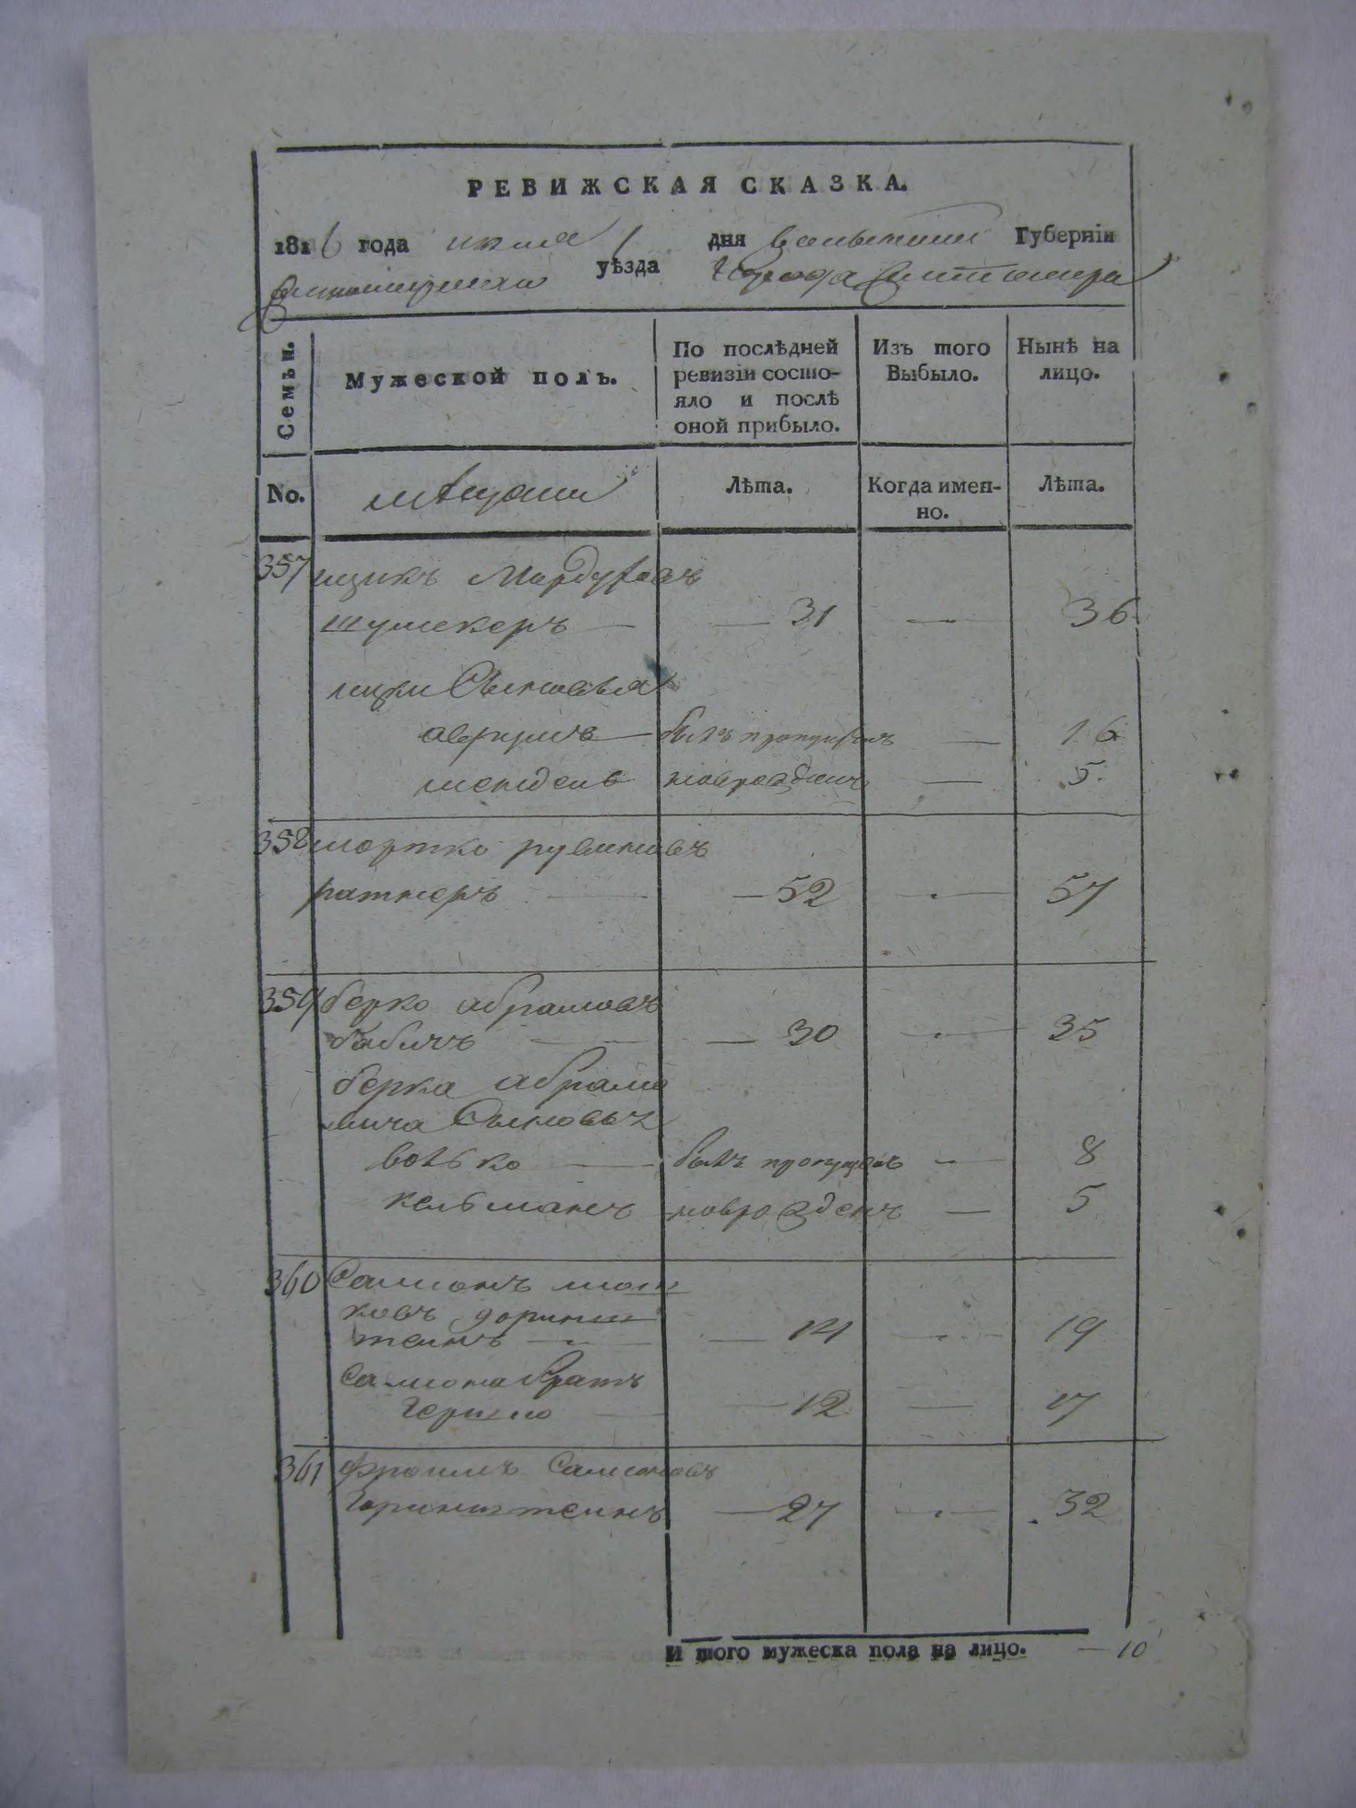 РЕВИЖСКАЯ СКАЗКА.
1816 года июля 1 дня волынской Губернiи
Житомирскаго уѣзда Города Житомира
Семьи.
Мужеской полъ.
По послѣдней ревизiи состояло и послѣ оной прибыло.
Изъ того Выбыло.
Нынѣ на лицо.
No.
мѣщани
Лѣта.
Когда именно.
Лѣта.
357 ицикъ Мордуховъ
шумекеръ — — 31 — 36
ицки Сыновья
аврумъ — былъ пропущенъ — 16
мендель новорожденъ — 5.
358 мортко рувиновъ
ратнеръ — — 52 — 57
359 берко абрамовъ
бабичъ — — 30 — 35
берка абрамо
вича Сыновья
волько — былъ пропущенъ — 8
кельманъ новорожденъ — 5
360 Самсонъ мош
ковъ горинш
теинъ — — 14 — 19
Самсона братъ
Гершко — — 12 — 17
361 фроимъ Самсоновъ
Горинштеинъ — 27 — 32
И того мужеска пола на лицо. — 10